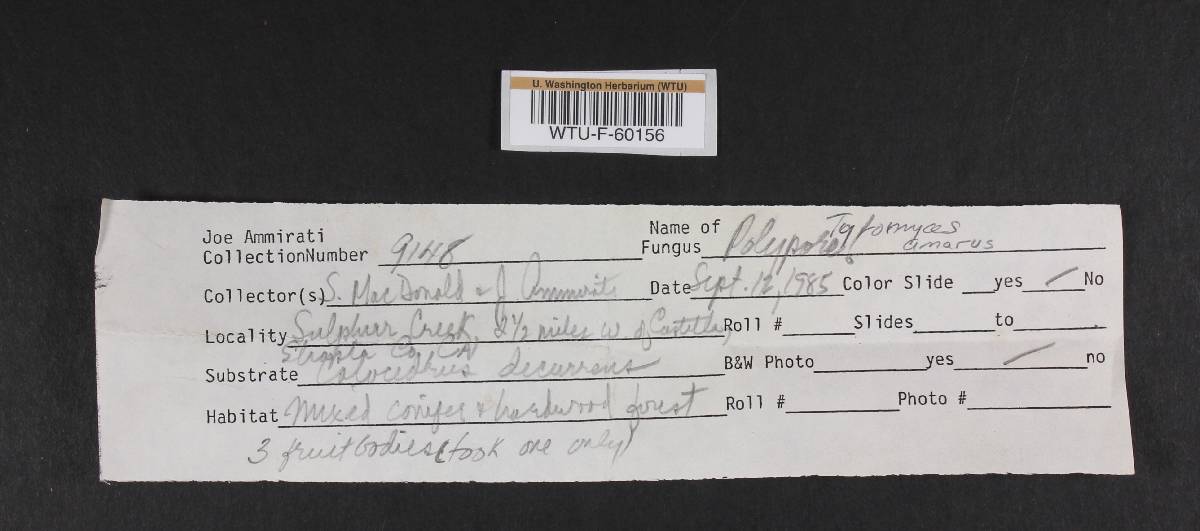 U. Washington Herbarium (WTU)
WTU-F-60156
Joe Ammirati
CollectionNumber 9148
Name of Fungus Polypore! Tyromyces amarus
Collector(s) S. MacDonald & J. Ammirati Date Sept. 12, 1985 Color Slide yes / No
Locality Sulphur Creek, 2 1/2 miles w. of Castella, Roll # Slides to
Shasta Co. CA
Substrate Calocedrus decurrens B&W Photo yes / no
Habitat Mixed conifer & hardwood forest Roll # Photo #
3 fruitbodies (took one only)